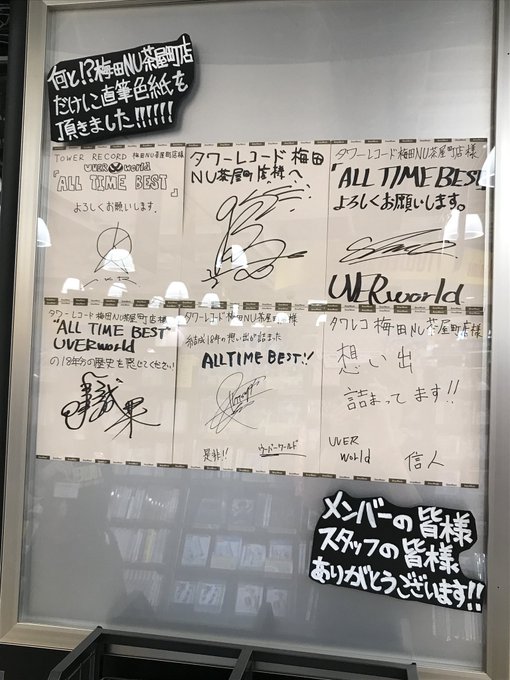 何と!?梅田NU茶屋町店
だけに直筆色紙を
頂きました!!!!!!
TOWER RECORD 梅田NU茶屋町店様
UVERworld
『ALL TIME BEST』
よろしくお願いします.
タワーレコード梅田
NU茶屋町店様へ
タワーレコード梅田NU茶屋町店様
『ALL TIME BEST』
よろしくお願いします。
UVERworld
タワーレコード梅田NU茶屋町店様
"ALL TIME BEST"
UVERworld
の18年分の歴史を感じてください
タワーレコード梅田NU茶屋町店様
結成18年の想い出が詰まった
ALL TIME BEST!!
是非!!
ウーバーワールド
タワレコ 梅田NU茶屋町店様
想い出
詰まってます!!
UVER
world
信人
メンバーの皆様
スタッフの皆様
ありがとうございます!!